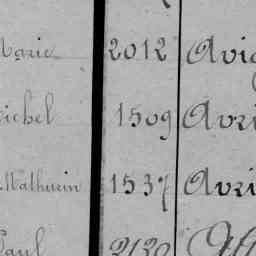 Marie 2012 Avi
ichel 1509 Avri
Mathurin 1537 Avri
Paul 2130